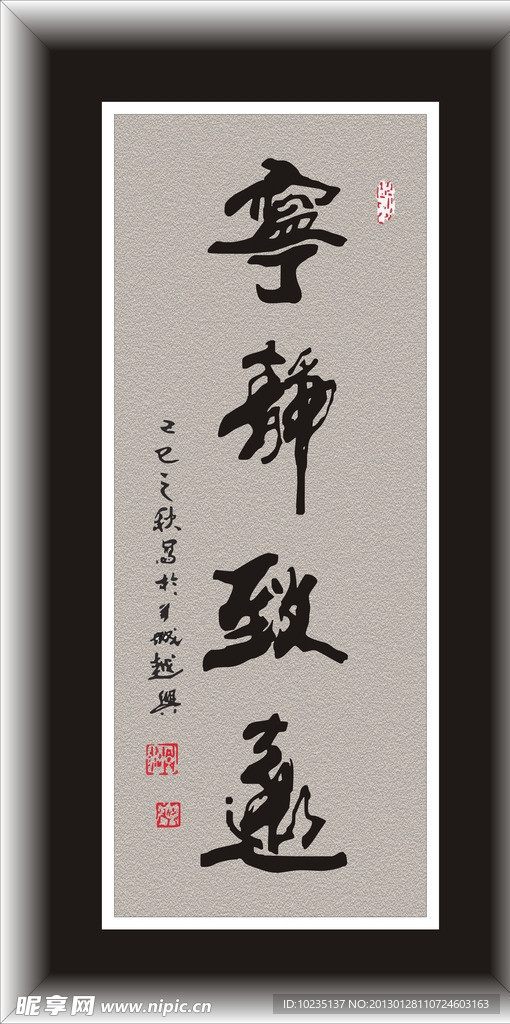 寧靜致遠
乙巳之秋寫於羊城越興
昵享网 www.nipic.cn
ID:10235137 NO:20130128110724603163